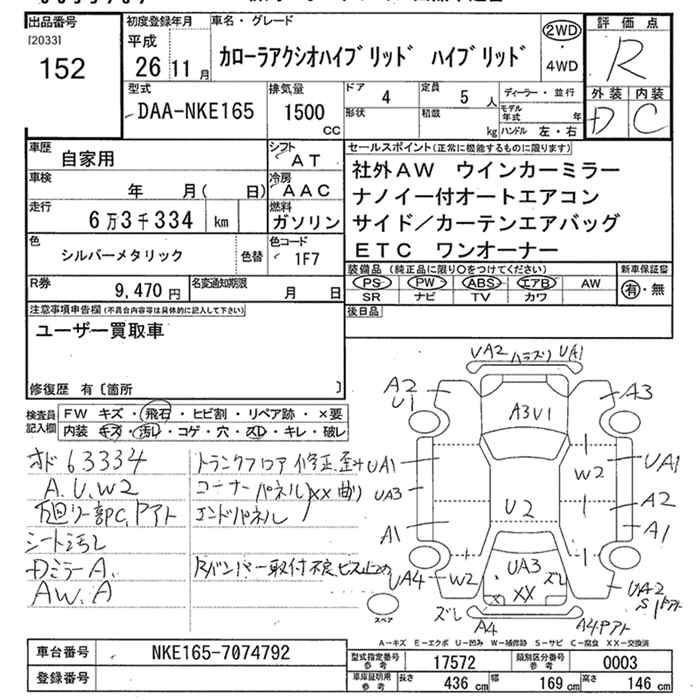 出品番号
[2033]
152
初度登録年月
平成
26 11月
車名・グレード
カローラアクシオハイブリッド ハイブリッド
2WD
・
4WD
評価点
R
外装 内装
D C
型式
DAA-NKE165
排気量
1500
CC
ドア
4
定員
5 人
ディーラー・並行
形状
積載
kg
モデル年式 年
ハンドル 左・右
車歴
自家用
シフト
AT
車検
年 月( 日)
冷房
AAC
走行
6万3千334 km
燃料
ガソリン
色
シルバーメタリック
色替
色コード
1F7
R券
9,470円
名変通知期限
月 日
セールスポイント(正常に機能するものに限ります)
社外AW ウインカーミラー
ナノイー付オートエアコン
サイド/カーテンエアバッグ
ETC ワンオーナー
装備品(純正品に限り○をつけてください)
新車保証書
PS PW ABS エアB AW
有・無
SR ナビ TV カワ
後日品
注意事項申告欄(不具合内容等は具体的に記入して下さい)
ユーザー買取車
修復歴 有〔箇所 〕
検査員
記入欄
FW キズ・飛石・ヒビ割・リペア跡・×要
内装 キズ・汚れ・コゲ・穴・スレ・キレ・破レ
オド63334
A.U.W2
下廻リ一部PC.Pアト
シート汚レ
Dミラー A.
AW.A
トランクフロア 修正.歪ミ
コーナーパネル XX 曲リ
エンドパネル
Rバンパー取付不良.ビス止め
UA2 ハラズリ UA1
A2
U1
A3
A3U1
UA1
UA3
W2
UA1
A2
U2
A1
A1
UA4
W2
UA3
XX
ズレ
UA2
S1Pアト
ズレ
A4
A4Pアト
スペア
A-キズ E-エクボ U-凹み W-補修跡 S-サビ C-腐食 XX-交換済
車台番号
NKE165-7074792
登録番号
型式指定番号
参考
17572
類別区分番号
参考
0003
車庫証明用
参考
長さ
436 cm
幅
169 cm
高さ
146 cm